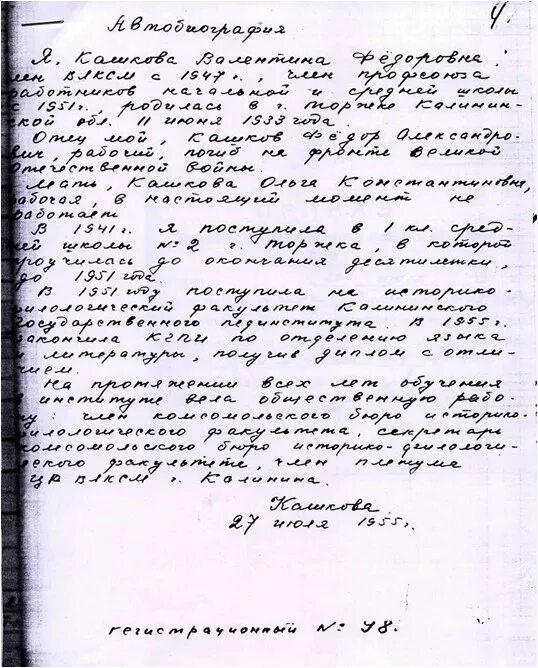 4.
Автобиография
Я, Кашкова Валентина Фёдоровна,
лен ВЛКСМ с 1947 г., член профсоюза
работников начальной и средней школы
с 1951 г., родилась в г. Торжке Калинин-
ской обл. 11 июня 1933 года.
Отец мой, Кашков Фёдор Александро-
вич, рабочий, погиб на фронте Великой
Отечественной войны.
Мать, Кашкова Ольга Константиновна,
рабочая, в настоящий момент не
работает
В 1941 г. я поступила в 1 кл. сред-
ей школы № 2 г. Торжка, в которой
роучилась до окончания десятилетки,
до 1951 года.
В 1951 году поступила на историко-
илологический факультет Калининского
Государственного пединститута. В 1955 г.
закончила КГПИ по отделению языка
и литературы, получив диплом с отли-
чием.
На протяжении всех лет обучения
в институте вела общественную рабо-
ту: член комсомольского бюро историко-
филологического факультета, секретарь
комсомольского бюро историко-филологи-
ческого факультета, член пленума
ЦР ВЛКСМ г. Калинина.
Кашкова
27 июля 1955 г.
регистрационный № 98.